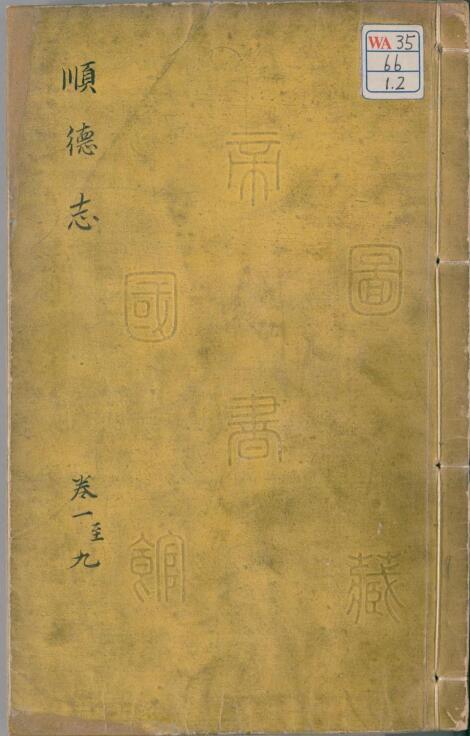 順德志
卷一至九
WA 35
66
1.2
帝
國
圖
書
館
藏